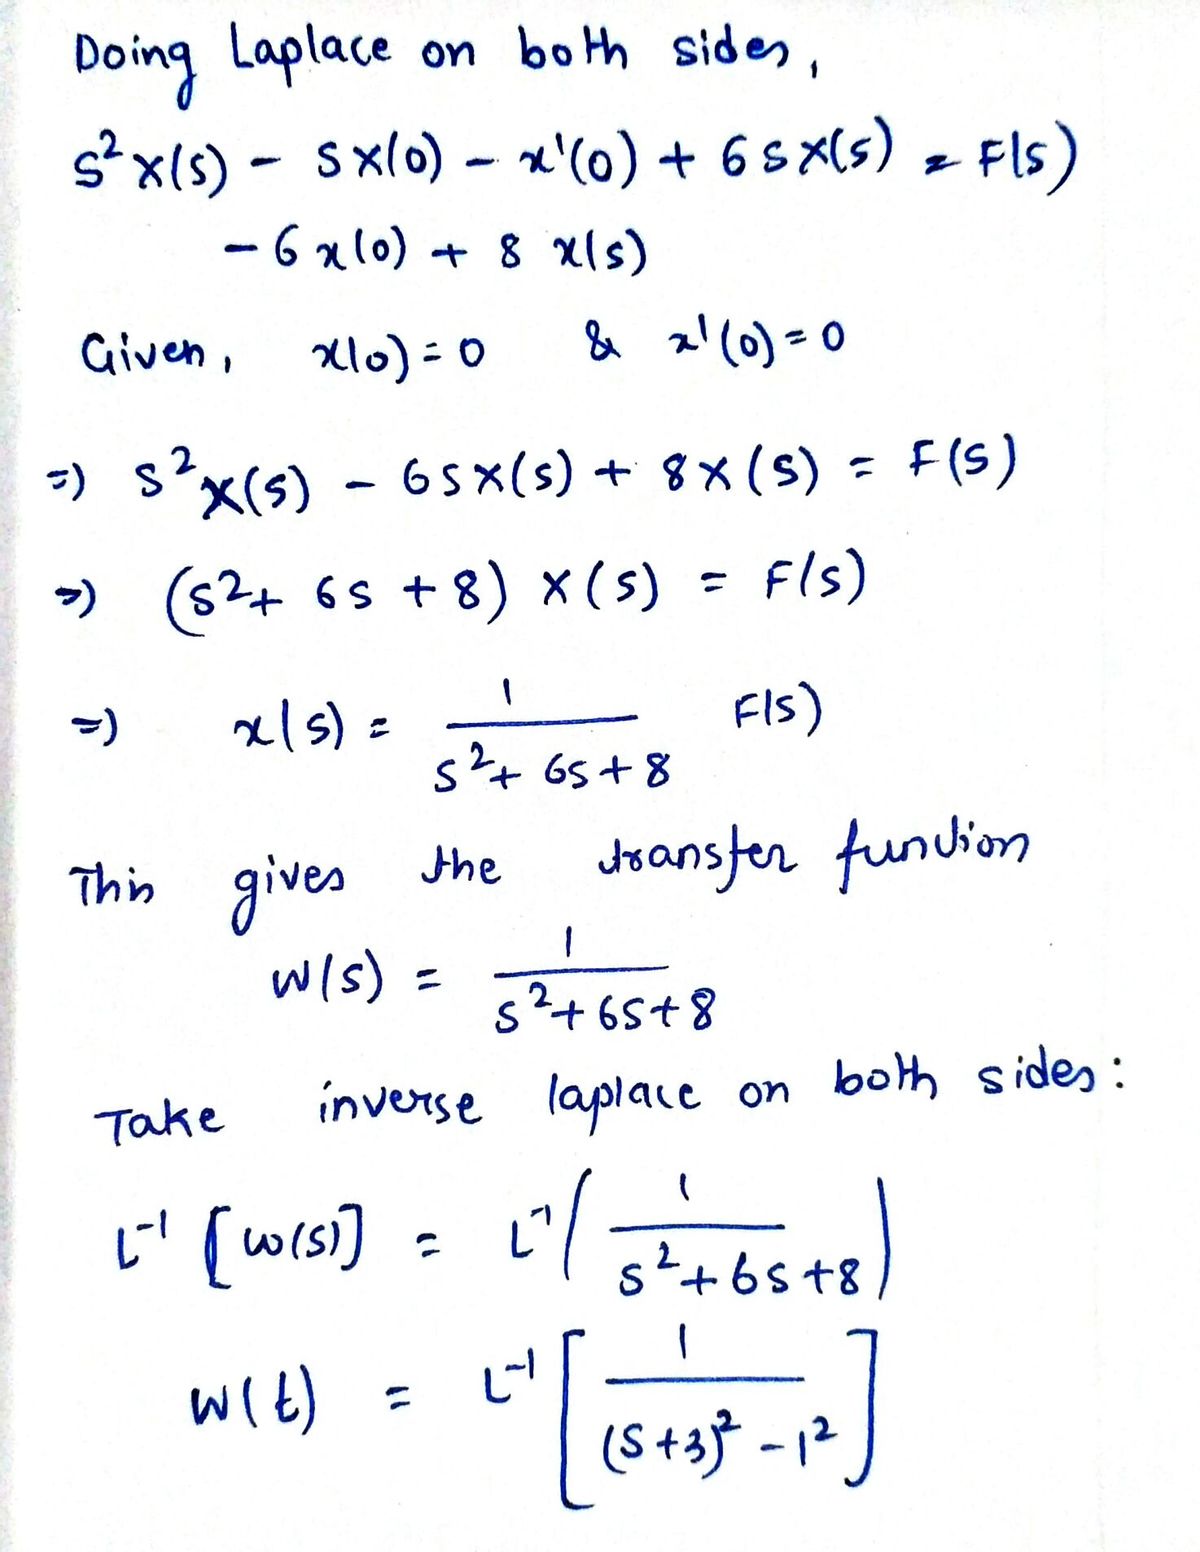 Doing Laplace on both sides,
s²x(s) - sx(0) - x'(0) + 6sx(s) = F(s)
- 6x(0) + 8x(s)
Given, x(0) = 0 & x'(0) = 0
=) s²x(s) - 6sx(s) + 8x(s) = F(s)
=) (s² + 6s + 8) x(s) = F(s)
=) x(s) = 1 / (s² + 6s + 8) F(s)
This gives the transfer function
W(s) = 1 / (s² + 6s + 8)
Take inverse laplace on both sides:
L⁻¹ [w(s)] = L⁻¹ (1 / (s² + 6s + 8))
W(t) = L⁻¹ [1 / ((s+3)² - 1²)]